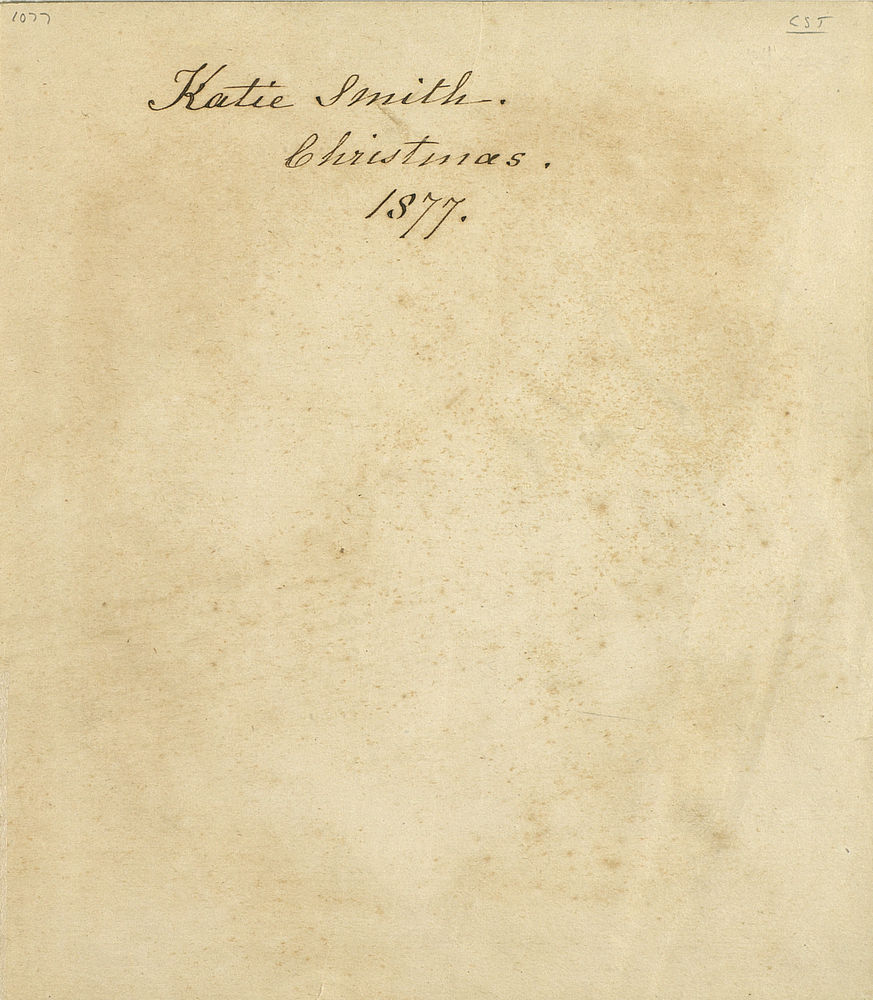 1077
CST
Katie Smith.
Christmas.
1877.